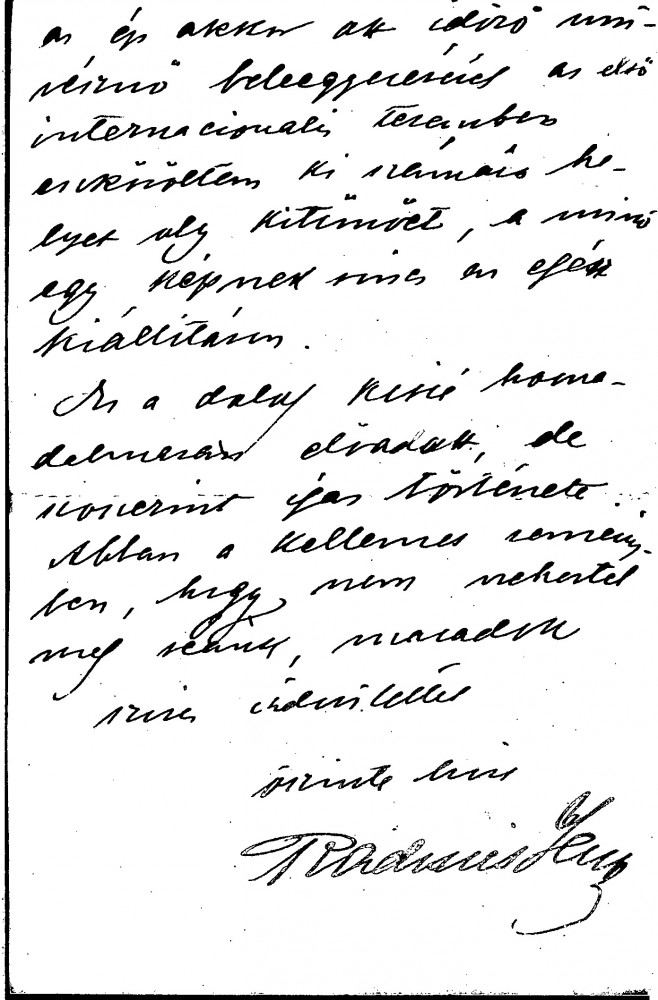 az ép akkor ott időző mű-
vésznő beleegyezésével az első
internacionalis teremben
eszközöltem ki számára he-
lyet oly kitünőet, a minő
egy képnek sincs az egész
kiállításon.
Ez a dolog kissé homa-
delmesen előadott, de
szószerint igaz története.
Abban a kellemes remény-
ben, hogy nem nehestel
meg reánk, maradok
szives üdvözlettel
őszinte hive
Radisics Jenő